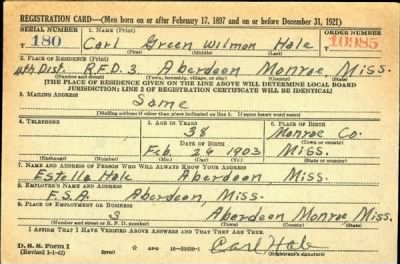 REGISTRATION CARD—(Men born on or after February 17, 1897 and on or before December 31, 1921)
SERIAL NUMBER 1. NAME (Print) ORDER NUMBER
T 180 Carl Green Wilmon Hale 10985
(First) (Middle) (Last)
2. PLACE OF RESIDENCE (Print)
4th Dist. R.F.D. 3 Aberdeen Monroe Miss.
(Number and street) (Town, township, village, or city) (County) (State)
[THE PLACE OF RESIDENCE GIVEN ON THE LINE ABOVE WILL DETERMINE LOCAL BOARD
JURISDICTION; LINE 2 OF REGISTRATION CERTIFICATE WILL BE IDENTICAL]
3. MAILING ADDRESS
Same
[Mailing address if other than place indicated on line 2. If same insert word same]
4. TELEPHONE 5. AGE IN YEARS 6. PLACE OF BIRTH
38 Monroe Co.
DATE OF BIRTH (Town or county)
Feb 1903 Miss.
(Exchange) (Number) (Mo.) (Day) (Yr.) (State or country)
7. NAME AND ADDRESS OF PERSON WHO WILL ALWAYS KNOW YOUR ADDRESS
Estella Hale Aberdeen, Miss.
8. EMPLOYER'S NAME AND ADDRESS
F.S.A. Aberdeen, Miss.
9. PLACE OF EMPLOYMENT OR BUSINESS
3 Aberdeen Monroe Miss.
(Number and street or R. F. D. number) (Town) (County) (State)
I AFFIRM THAT I HAVE VERIFIED ABOVE ANSWERS AND THAT THEY ARE TRUE.
D. S. S. Form 1 GPO Carl Hale
(Revised 1-1-42) (over) (Registrant's signature)